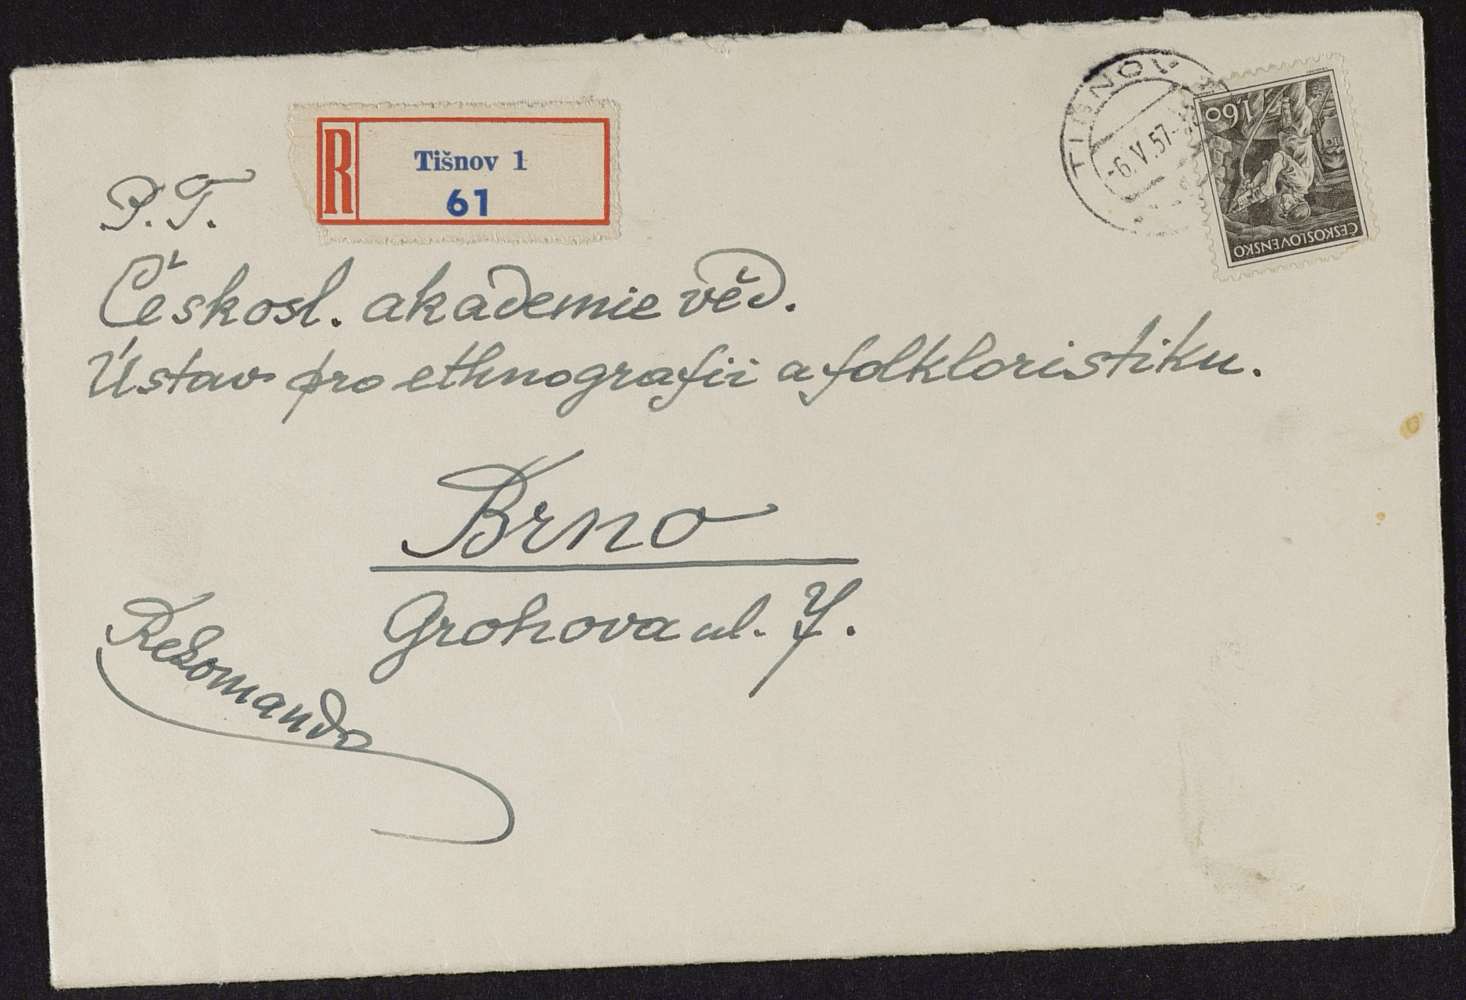 R
Tišnov 1
61
TIŠNOV
-6.V.57-
1,60
ČESKOSLOVENSKO
P.T.
Českosl. akademie věd.
Ústav pro ethnografii a folkloristiku.
Brno
Grohova ul. 7.
Rekomando